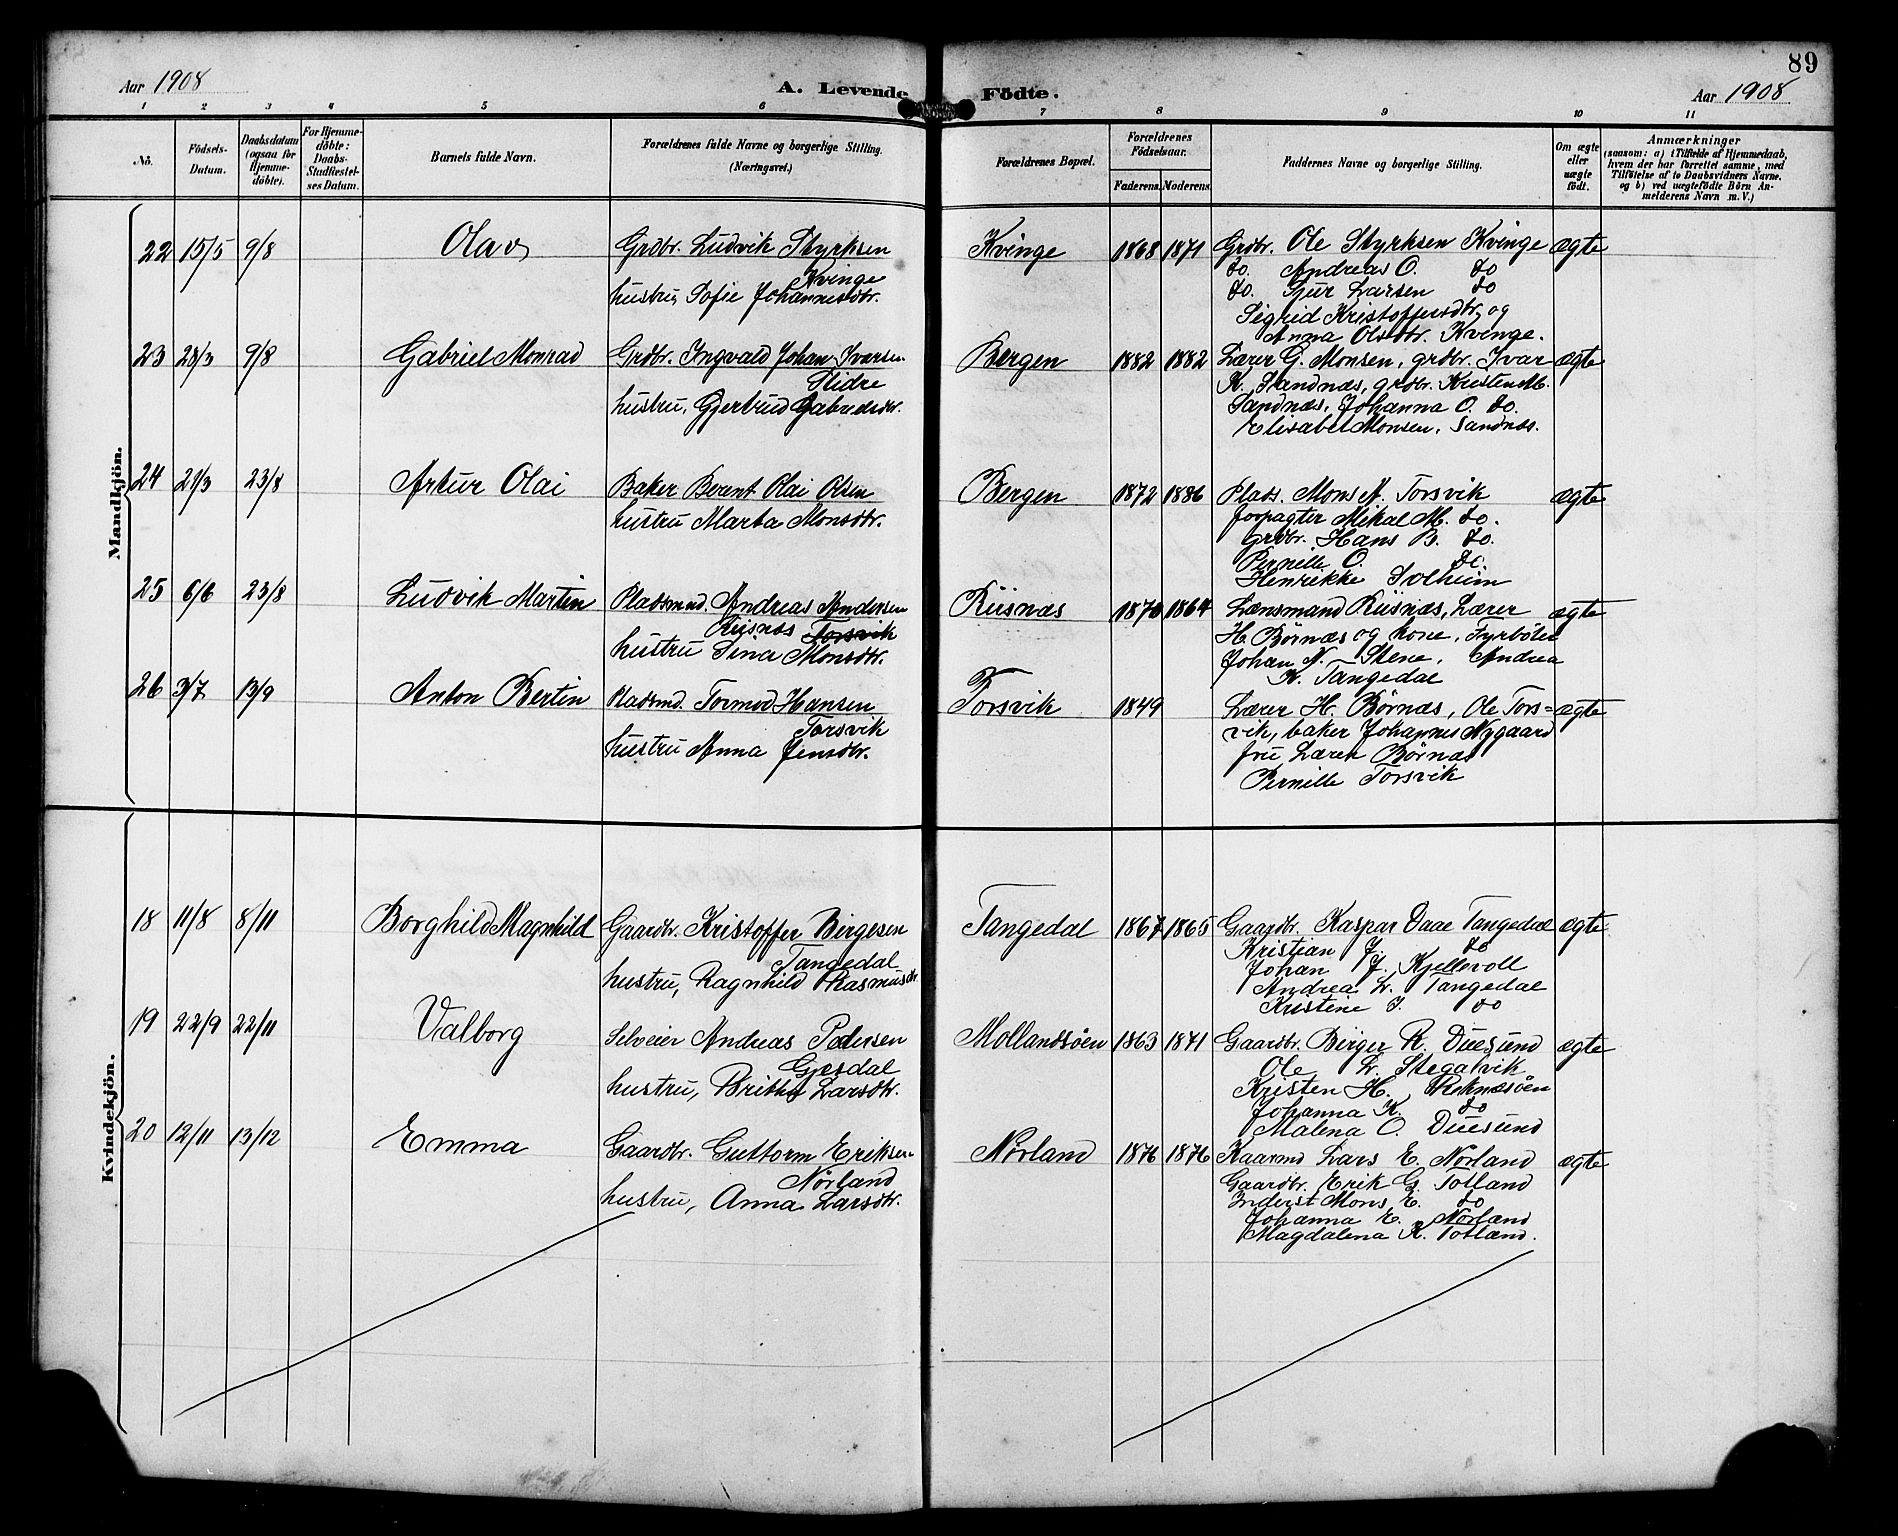 89
Aar 1908
A. Levende Födte.
Aar 1908
1 2 3 4 5 6 7 8 9 10 11
No.
Födsels-
Datum.
Daabsdatum
(ogsaa for
Hjemme-
döbte).
For Hjemme-
döbte:
Daabs-
Stadfæstel-
ses Datum.
Barnets fulde Navn.
Forældrenes fulde Navne og borgerlige Stilling.
(Næringsvei.)
Forældrenes Bopæl.
Forældrenes
Födselsaar.
Faderens. Moderens.
Faddernes Navne og borgerlige Stilling.
Om ægte
eller
uægte
födt.
Anmærkninger
(saasom: a) i Tilfælde af Hjemmedaab,
hvem der har forrettet samme, med
Tilföielse af to Daabsvidners Navne.
og b) ved uægtefödte Börn An-
melderens Navn m. V.)
Mandkjön.
22 15/5 9/8 Olav Grdbr. Ludvik Styrksen Kvinge 1868 1871 Grdbr. Ole Styrksen Kvinge ægte
Kvinge
hustru, Sofie Johannesdtr.
do. Andreas O. do
do. Sjur Larsen do
Sigrid Kristoffersdtr, og
Anna Olsdtr. Kvinge.
23 28/3 9/8 Gabriel Monrad Grdbr. Ingvald Johan Ivarsen Bergen 1882 1882 Lærer G. Monsen, grdbr. Ivar ægte
Slidre
hustru, Gjertrud Gabrielsdtr.
K. Sandnæs, grdbr. Kristen M.
Sandnæs, Johanna O. do.
Elisabet Monsen, Sandnæs.
24 21/3 23/8 Artur Olai Baker Berent Olai Olsen Bergen 1872 1886 Plads. Mons N. Torsvik ægte
hustru Marta Monsdtr.
forpagter Mikal M. do.
Grdbr. Hans B. do.
Pernille O. do.
Henrikke Solheim
25 6/6 23/8 Ludvik Martin Pladsmnd. Andreas Andersen Riisnæs 1870 1864 Lænsmand Riisnæs, Lærer ægte
Riisnæs Torsvik
hustru Sina Monsdtr.
H. Børnæs og kone, Fyrbøter
Johan N. Stene, Andrea
K. Tangedal
26 3/7 13/9 Anton Bertin Pladsmd. Tormod Hansen Torsvik 1849 Lærer H. Børnæs, Ole Tors= ægte
Torsvik
hustru Anna Jensdtr.
vik, baker Johannes Nygaard
fru Lærer Børnæs
Pernille Torsvik
Kvindekjön.
18 11/8 8/11 Borghild Magnhild Gaardbr. Kristoffer Birgesen Tangedal 1867 1865 Gaardbr. Kaspar Daae Tangedal ægte
Tangedal
hustru, Ragnhild Rasmusdtr
Kristian J. do
Johan J. Kjellevoll
Andrea L. Tangedal
Kristine I. do
19 22/9 22/11 Valborg Selveier Andreas Pedersen Mollandsøen 1863 1871 Gaardbr. Birger R. Duesund ægte
Gjesdal
hustru, Britha Larsdtr.
Ole L. Stegalvik
Kristen H. Reknæsøen
Johanna K. do
Malena O. Duesund
20 12/11 13/12 Emma Gaardbr. Guttorm Eriksen Nørland 1876 1876 Kaarmd Lars E. Nørland ægte
Nørland
hustru, Anna Larsdtr.
Gaardbr. Erik G. Totland
Inderst Mons E. do
Johanna E. Nørland
Magdalena K. Totland.